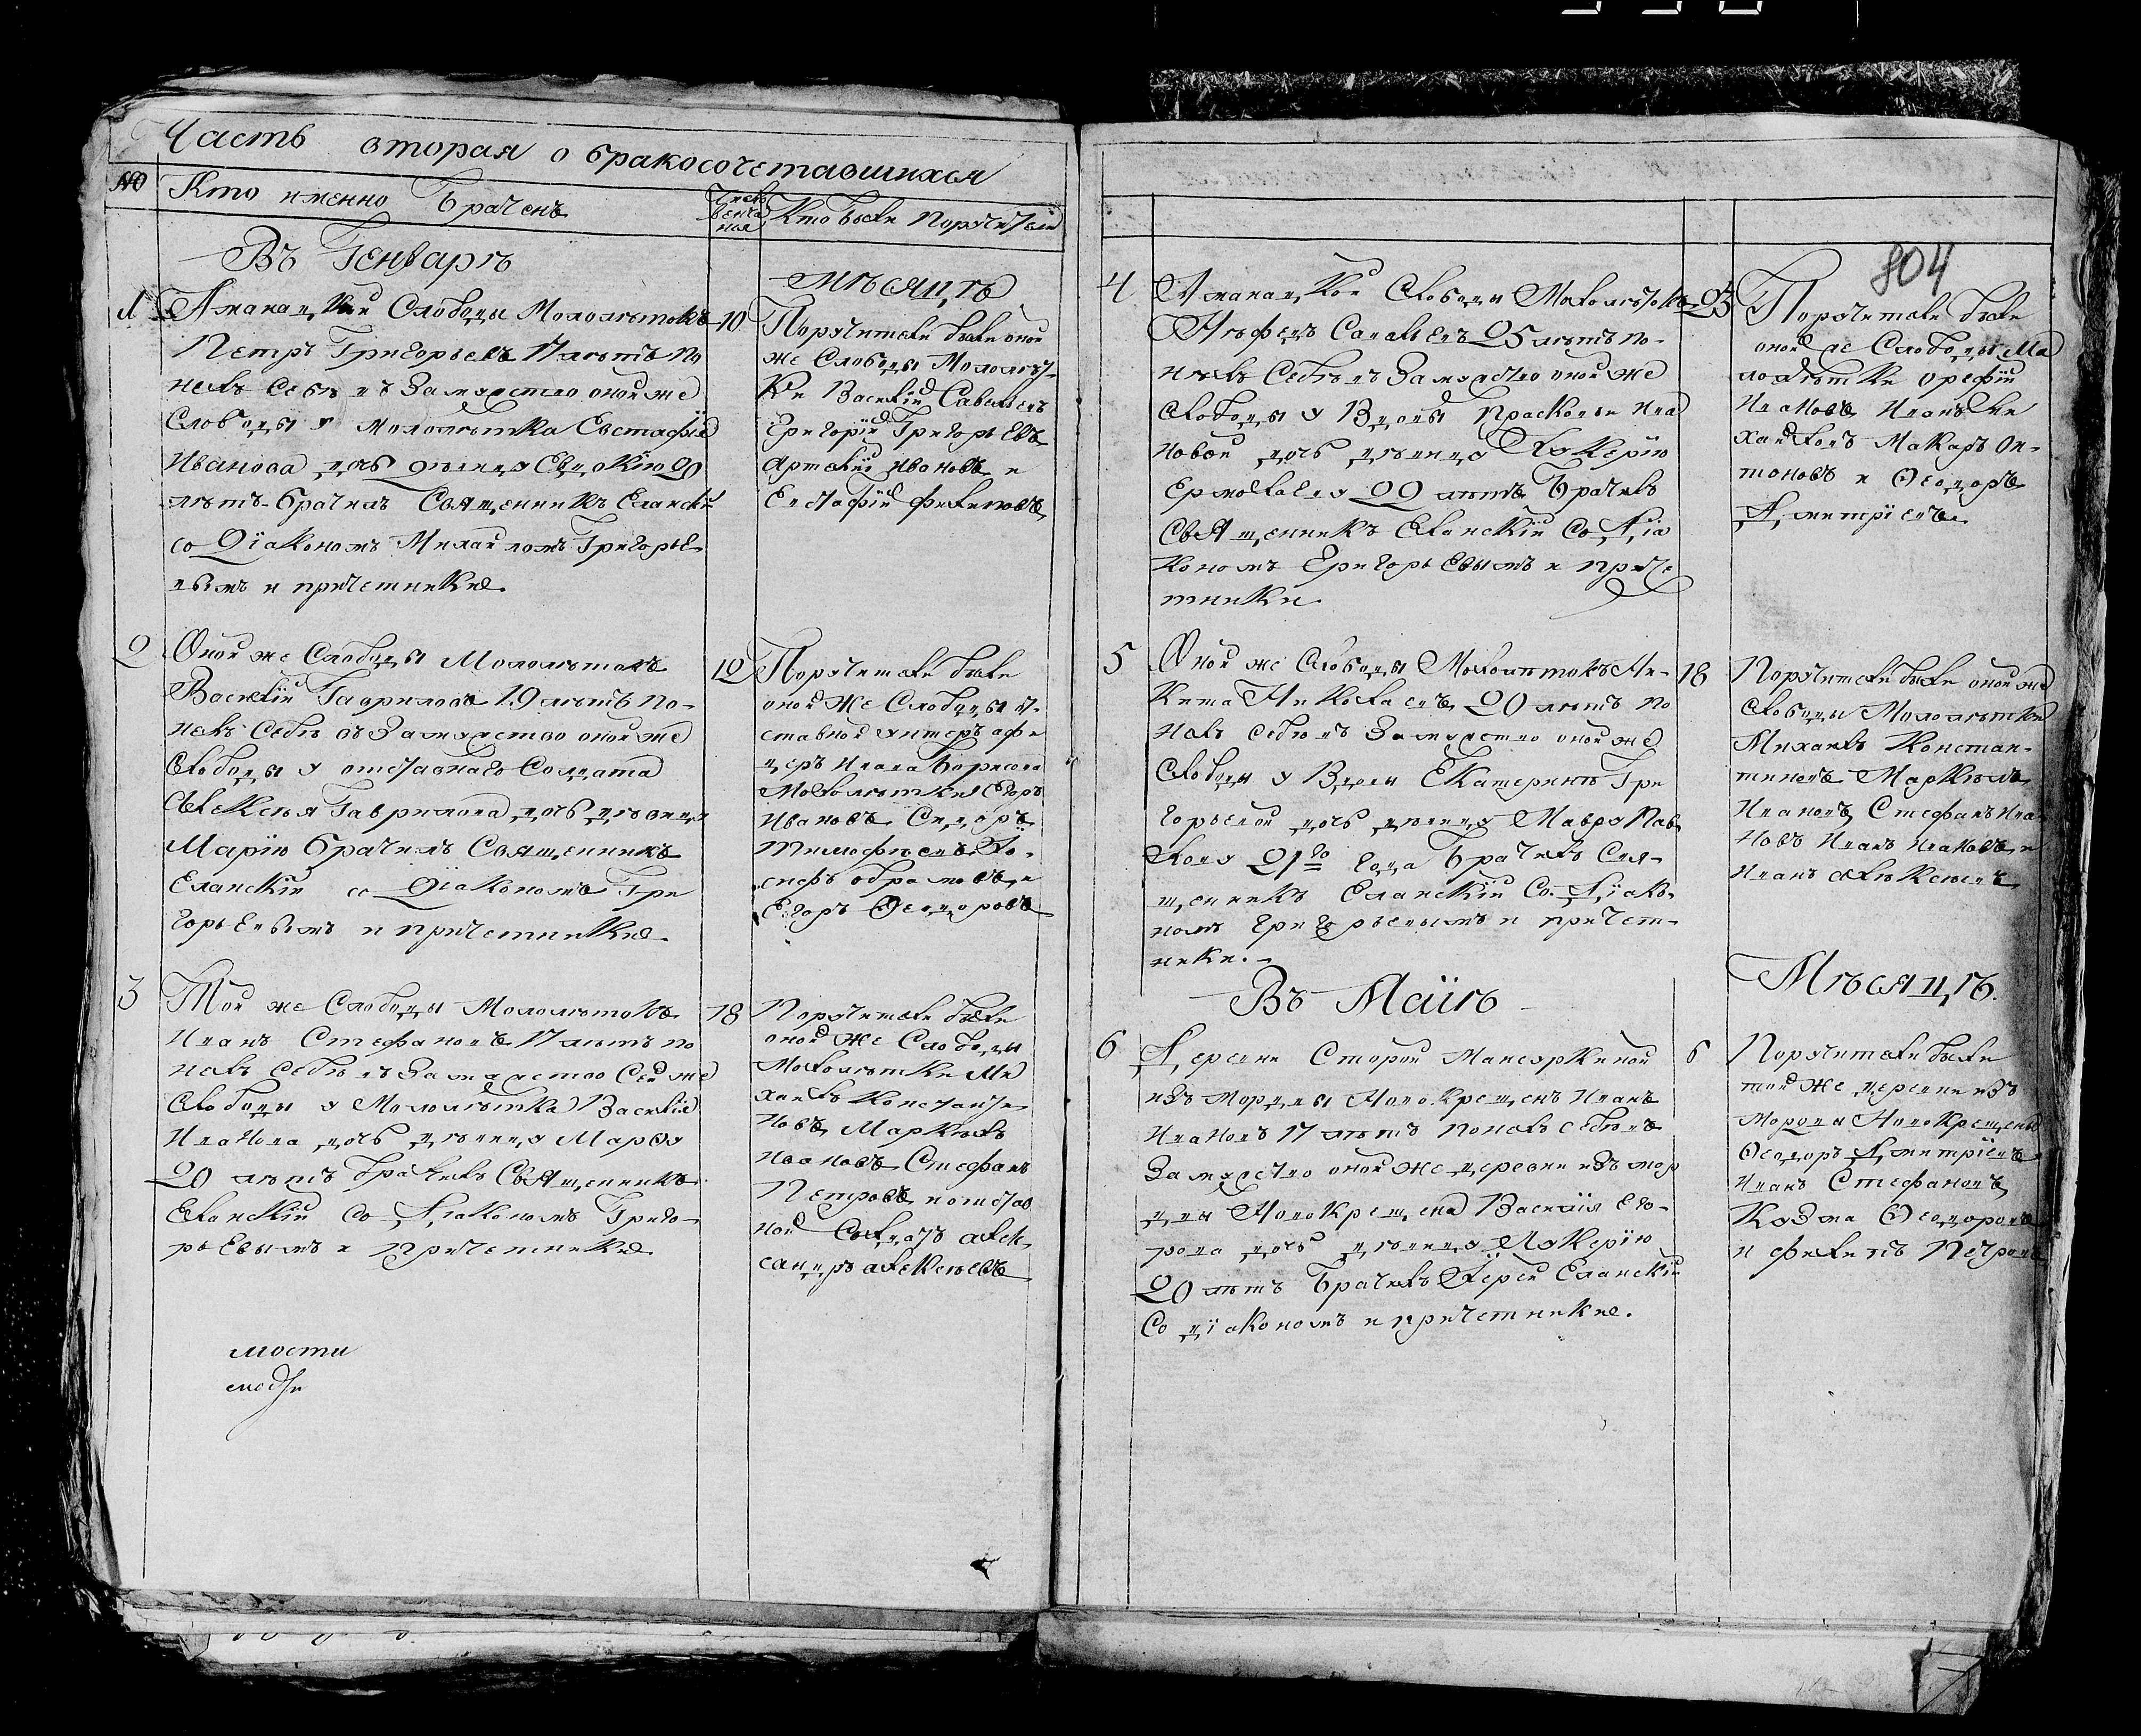 Часть вторая о бракосочетавшихся
№ Кто именно Браченъ
Кто были Поручители
Въ Генварѣ
мѣсяцѣ
1
Аманацкой Слободы Молольтокъ
Петръ Григорьевъ 17 лѣтъ по
нелъ Себѣ въ Замужство оной же
Слободы у Молольтка Евстафія
Иванова дочь девицу Евдокию 20
лѣтъ. брачилъ Священникъ Еланскій
со Діакономъ Михайломъ Григорье
вымъ и причетники.
10
Поручители были оной
же Слободы Мололѣт
ки Василій Савельевъ
Григорій Григорьевъ
Артемій Ивановъ и
Евстафій Филиповъ
2
Оной же Слободы Молольтокъ
Василій Гавриловъ 19 лѣтъ по-
нелъ Себѣ въ Замужство оной же
Слободы у отставнаго Солдата
Алексея Гаврилова дочь девицу
Марию брачилъ Священникъ
Еланскій со Діакономъ Гри
горьевымъ и причетники.
12
Поручители были
оной же Слободы от-
ставной унтеръ офи
церъ Ивана Борисова
Мололѣтки Егоръ
Ивановъ Сидоръ
Тимофѣевъ Іо-
сифъ Абрамовъ и
Егоръ Ѳеодоровъ
3
Той же Слободы Мололѣтокъ
Иванъ Стефановъ 17 лѣтъ по
нелъ Себѣ въ Замужство Сей же
Слободы у Мололѣтка Василія
Иванова дочь девицу Марфу
20 лѣтъ брачилъ Священникъ
Еланскій Со Діакономъ Григо-
рьевымъ и Причетники
18
Поручители были
оной же Слободы
Мололѣтки Ми
хаилъ Константи
новъ Маркелъ
Ивановъ Стефанъ
Петровъ и отстав
ной Солдатъ Алек
сандръ Алексеевъ
мости
804
4
Аманацкой Слободы Мололѣтокъ
Савельевъ 25 лѣтъ по-
нелъ Себѣ въ Замужство оной же
Слободы у Вдовы Прасковьи Ива
новой дочь девицу Лукерию
Ермолаеву 22 лѣтъ Брачилъ
Священникъ Еланскій Со Діа
кономъ Григорьевымъ и приче
тники
13
Поручители были
оной же Слободы Мо
лолѣтки Орефій
Ивановъ Иванъ Ми
хаиловъ Макаръ Он-
тоновъ и Ѳеодоръ
Дмитріевъ
5
Оной же Слободы Мололѣтокъ Ни-
кита Николаевъ 20 лѣтъ по
нелъ Себѣ въ Замужство оной же
Слободы у Вдовы Екатерины Гри
горьевой дочь девицу Мавру Пав
лову 21го года Брачилъ Свя-
щенникъ Еланскій Со Діако-
номъ Григорьевымъ и причет-
ники.
18
Поручители были оной же
Слободы Мололѣтки
Михаилъ Констан-
тиновъ Маркелъ
Ивановъ Стефанъ Ива
новъ Иванъ Ивановъ и
Иванъ Алексеевъ
Въ Маіѣ
Мѣсяцѣ.
6
Деревни Старой Мансуркиной
изъ мордвы Новокрещенъ Иванъ
Ивановъ 17 лѣтъ понелъ себѣ въ
Замужство оной же деревни изъ мор
двы Новокрещена Василія Его-
рова дочь девицу Лукерию
20 лѣтъ Брачилъ Иерей Еланскій
Со діакономъ и причетники.
6
Поручители были
той же деревни изъ
Мордвы Новокрещены
Ѳеодоръ Дмитріевъ
Иванъ Стефановъ
Кузма Ѳеодоровъ
и Филипъ Петровъ